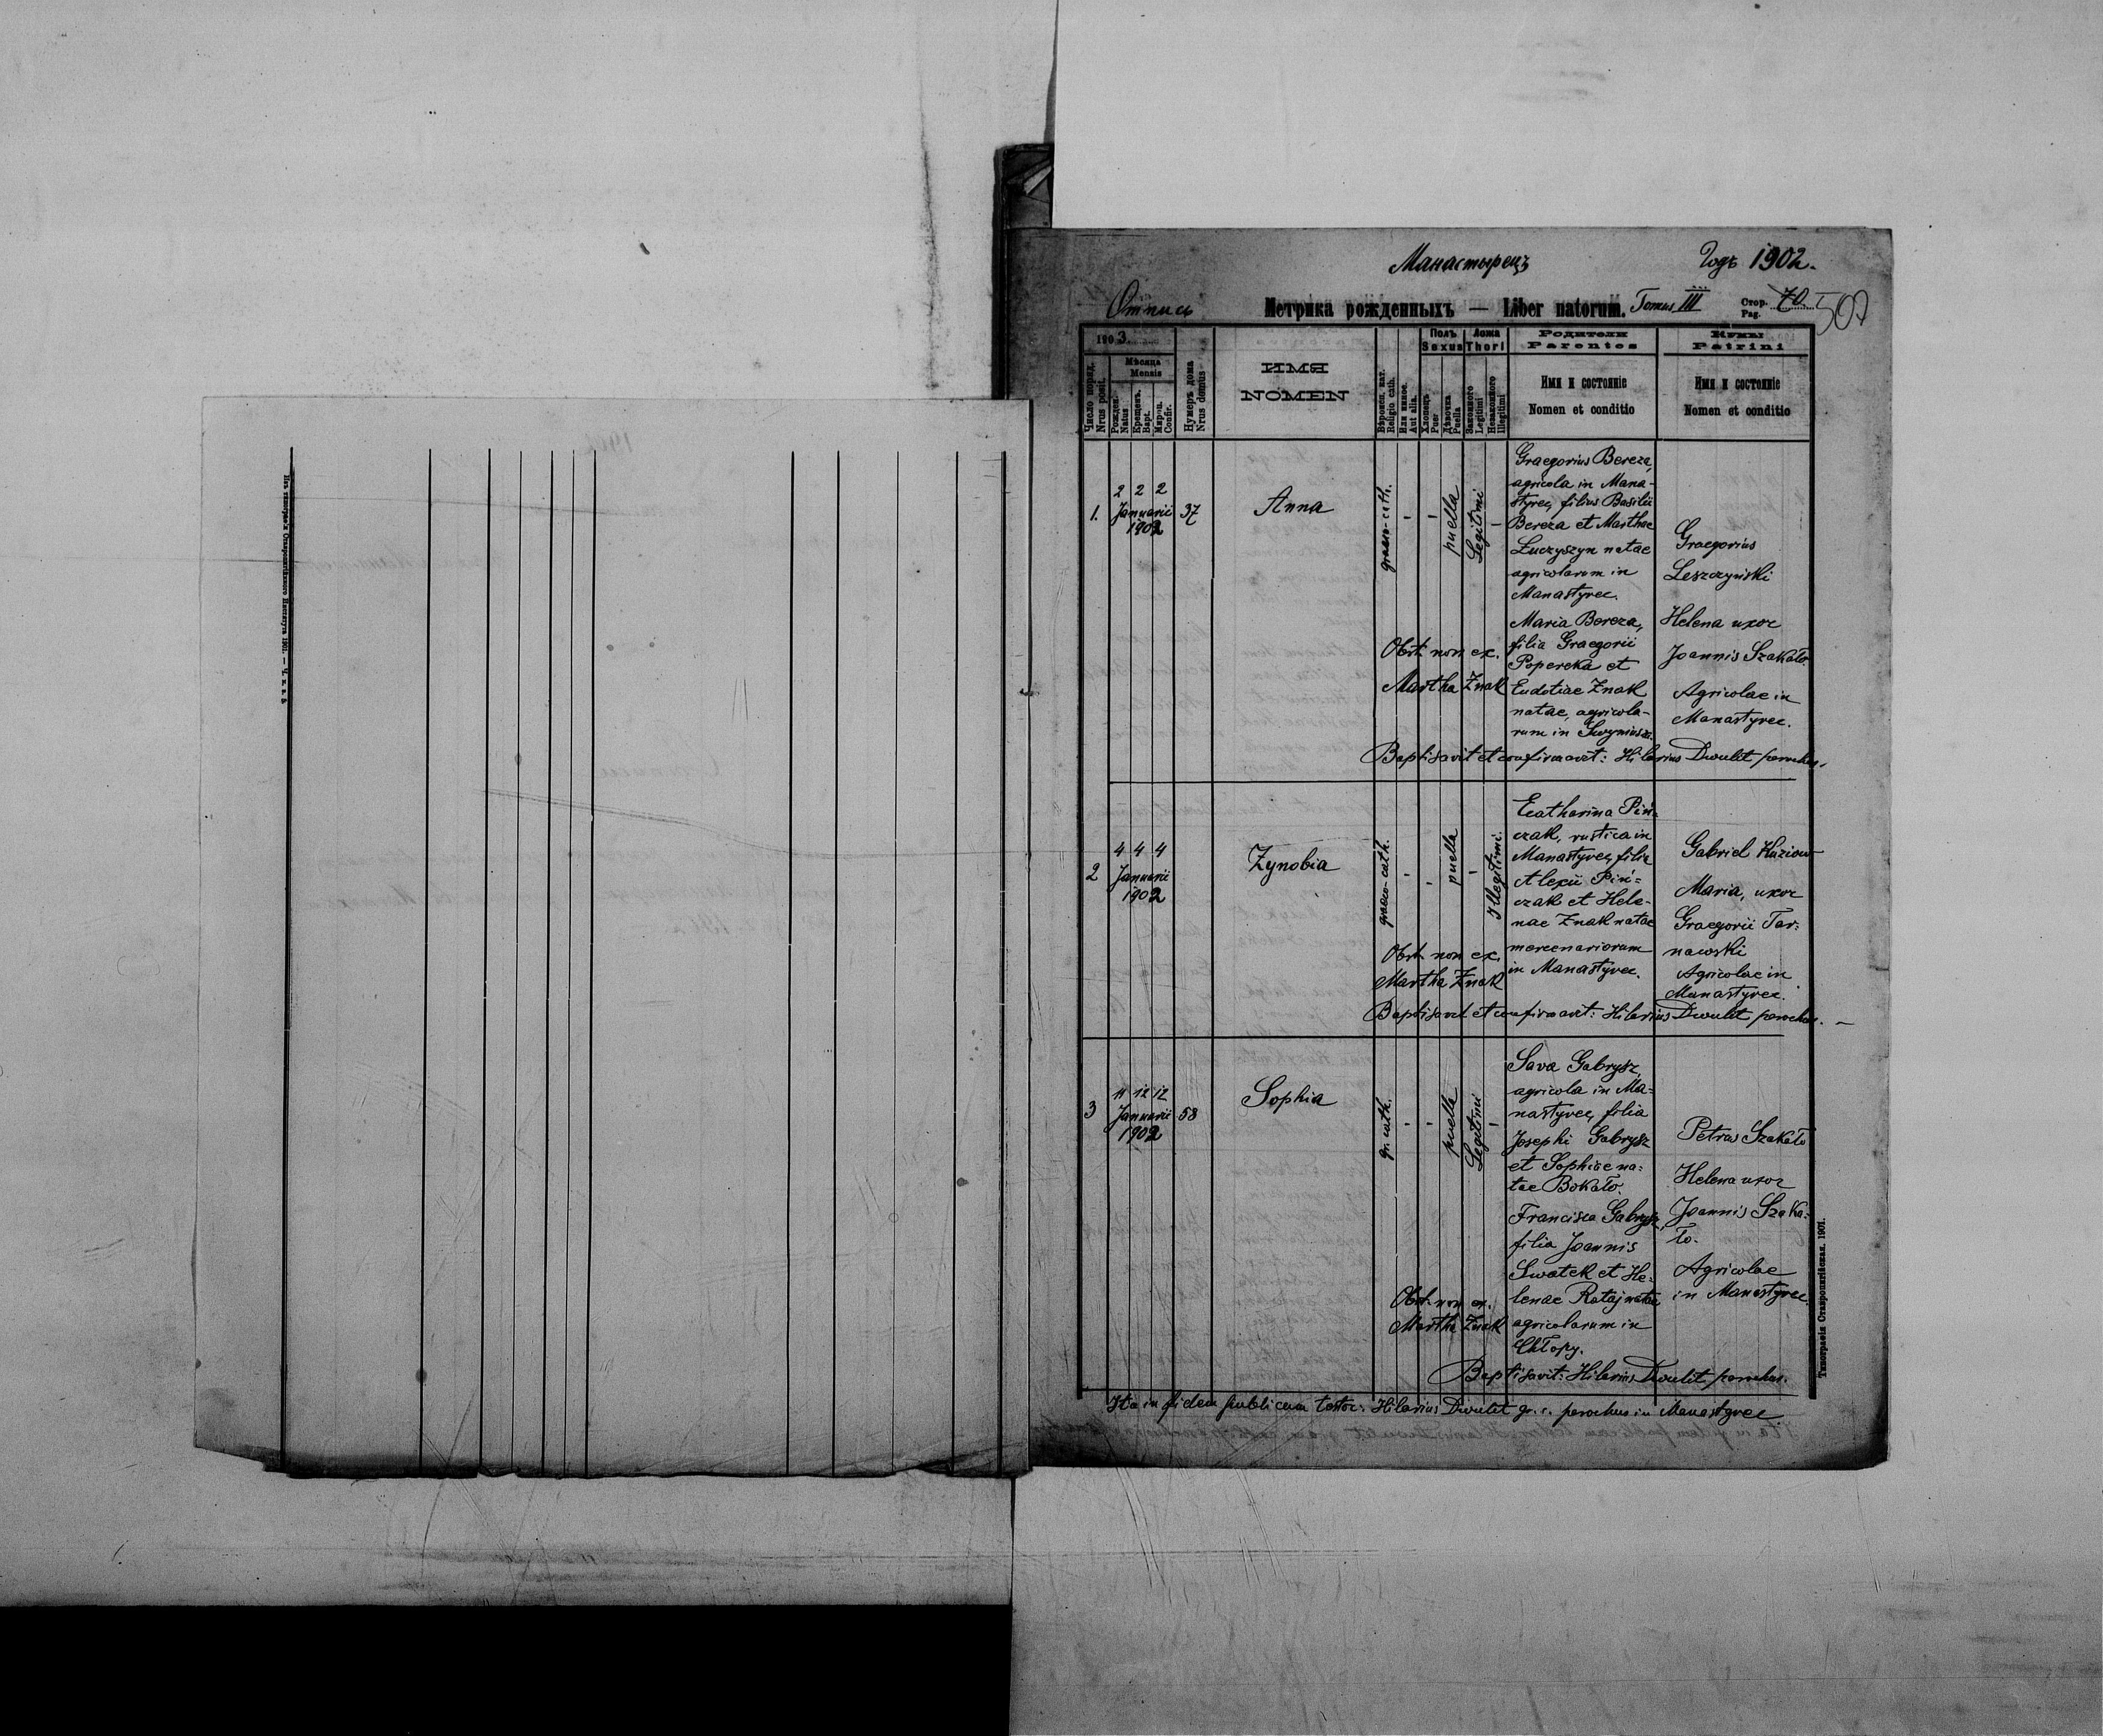 Манастырецъ Годъ 1902.
Отпись Метрика рожденныхъ — Liber natorum. Tomus III Стор. Pag. 70. 507
1903.
Число поряд. Nrus posit.
Мѣсяца Mensis
Рожден. Natus
Крещенъ. Bapt.
Мѵроп. Confir.
Нумеръ дома Nrus domus
ИМЯ
NOMEN
Вѣроисп. кат. Religio cath.
Или иное. Aut alia.
Полъ Sexus
Хлопецъ Puer
Дѣвочка Puella
Ложа Thori
Законного Legitimi
Незаконного Illegitimi
Родители
Parentes
Имя и состояніе
Nomen et conditio
Кумы
Patrini
Имя и состояніе
Nomen et conditio
1.
2 2 2
Januarii
1902
37
Anna
graeco-cath.
-
-
puella
Legitimi
-
Graegorius Bereza,
agricola in Mana-
styrec, filius Basilii
Bereza et Marthae
Łuczyszyn natae
agricolarum in
Manastyrec.
Maria Bereza,
filia Graegorii
Popereka et
Eudotiae Znak
natae, agricola-
rum in
Obst. non ex.
Martha Znak
Graegorius
Leszczyński
Helena uxor
Joannis Szakało
Agricolae in
Manastyrec.
Baptisavit et confirmavit: Hilarius Dwulit parochus.
2
4 4 4
Januarii
1902
Zynobia
graeco-cath.
-
-
puella
-
Illegitimi.
Ecatharina Piń=
czak, rustica in
Manastyrec, filia
Alexii Piń=
czak et Hele-
nae Znak natae
mercenariorum
in Manastyrec.
Obst. non ex.
Martha Znak
Gabriel Huziow
Maria, uxor
Graegorii Tar=
nawski
Agricolae in
Manastyrec.
Baptisavit et confirmavit: Hilarius Dwulit parochus. —
3
11 12 12
Januarii
1902
58
Sophia
gr. cath.
-
-
puella
Legitimi
-
Sava Gabrysz,
agricola in Ma=
nastyrec, filia
Josephi Gabrysz
et Sophiae na=
tae Bokało.
Francisca Gabrysz,
filia Joannis
Swatek et He=
lenae Rataj natae
agricolarum in
Chłopy.
Obst. non ex.
Martha Znak
Petrus Szakało
Helena uxor
Joannis Szaka=
ło.
Agricolae
in Manastyrec.
Baptisavit: Hilarius Dwulit parochus.
Ita in fidem publicam testor: Hilarius Dwulit gr. c. parochus in Manastyrec
Типографія Ставропигійская. 1901.
Изъ типографіи Ставропигійского Института 1901.